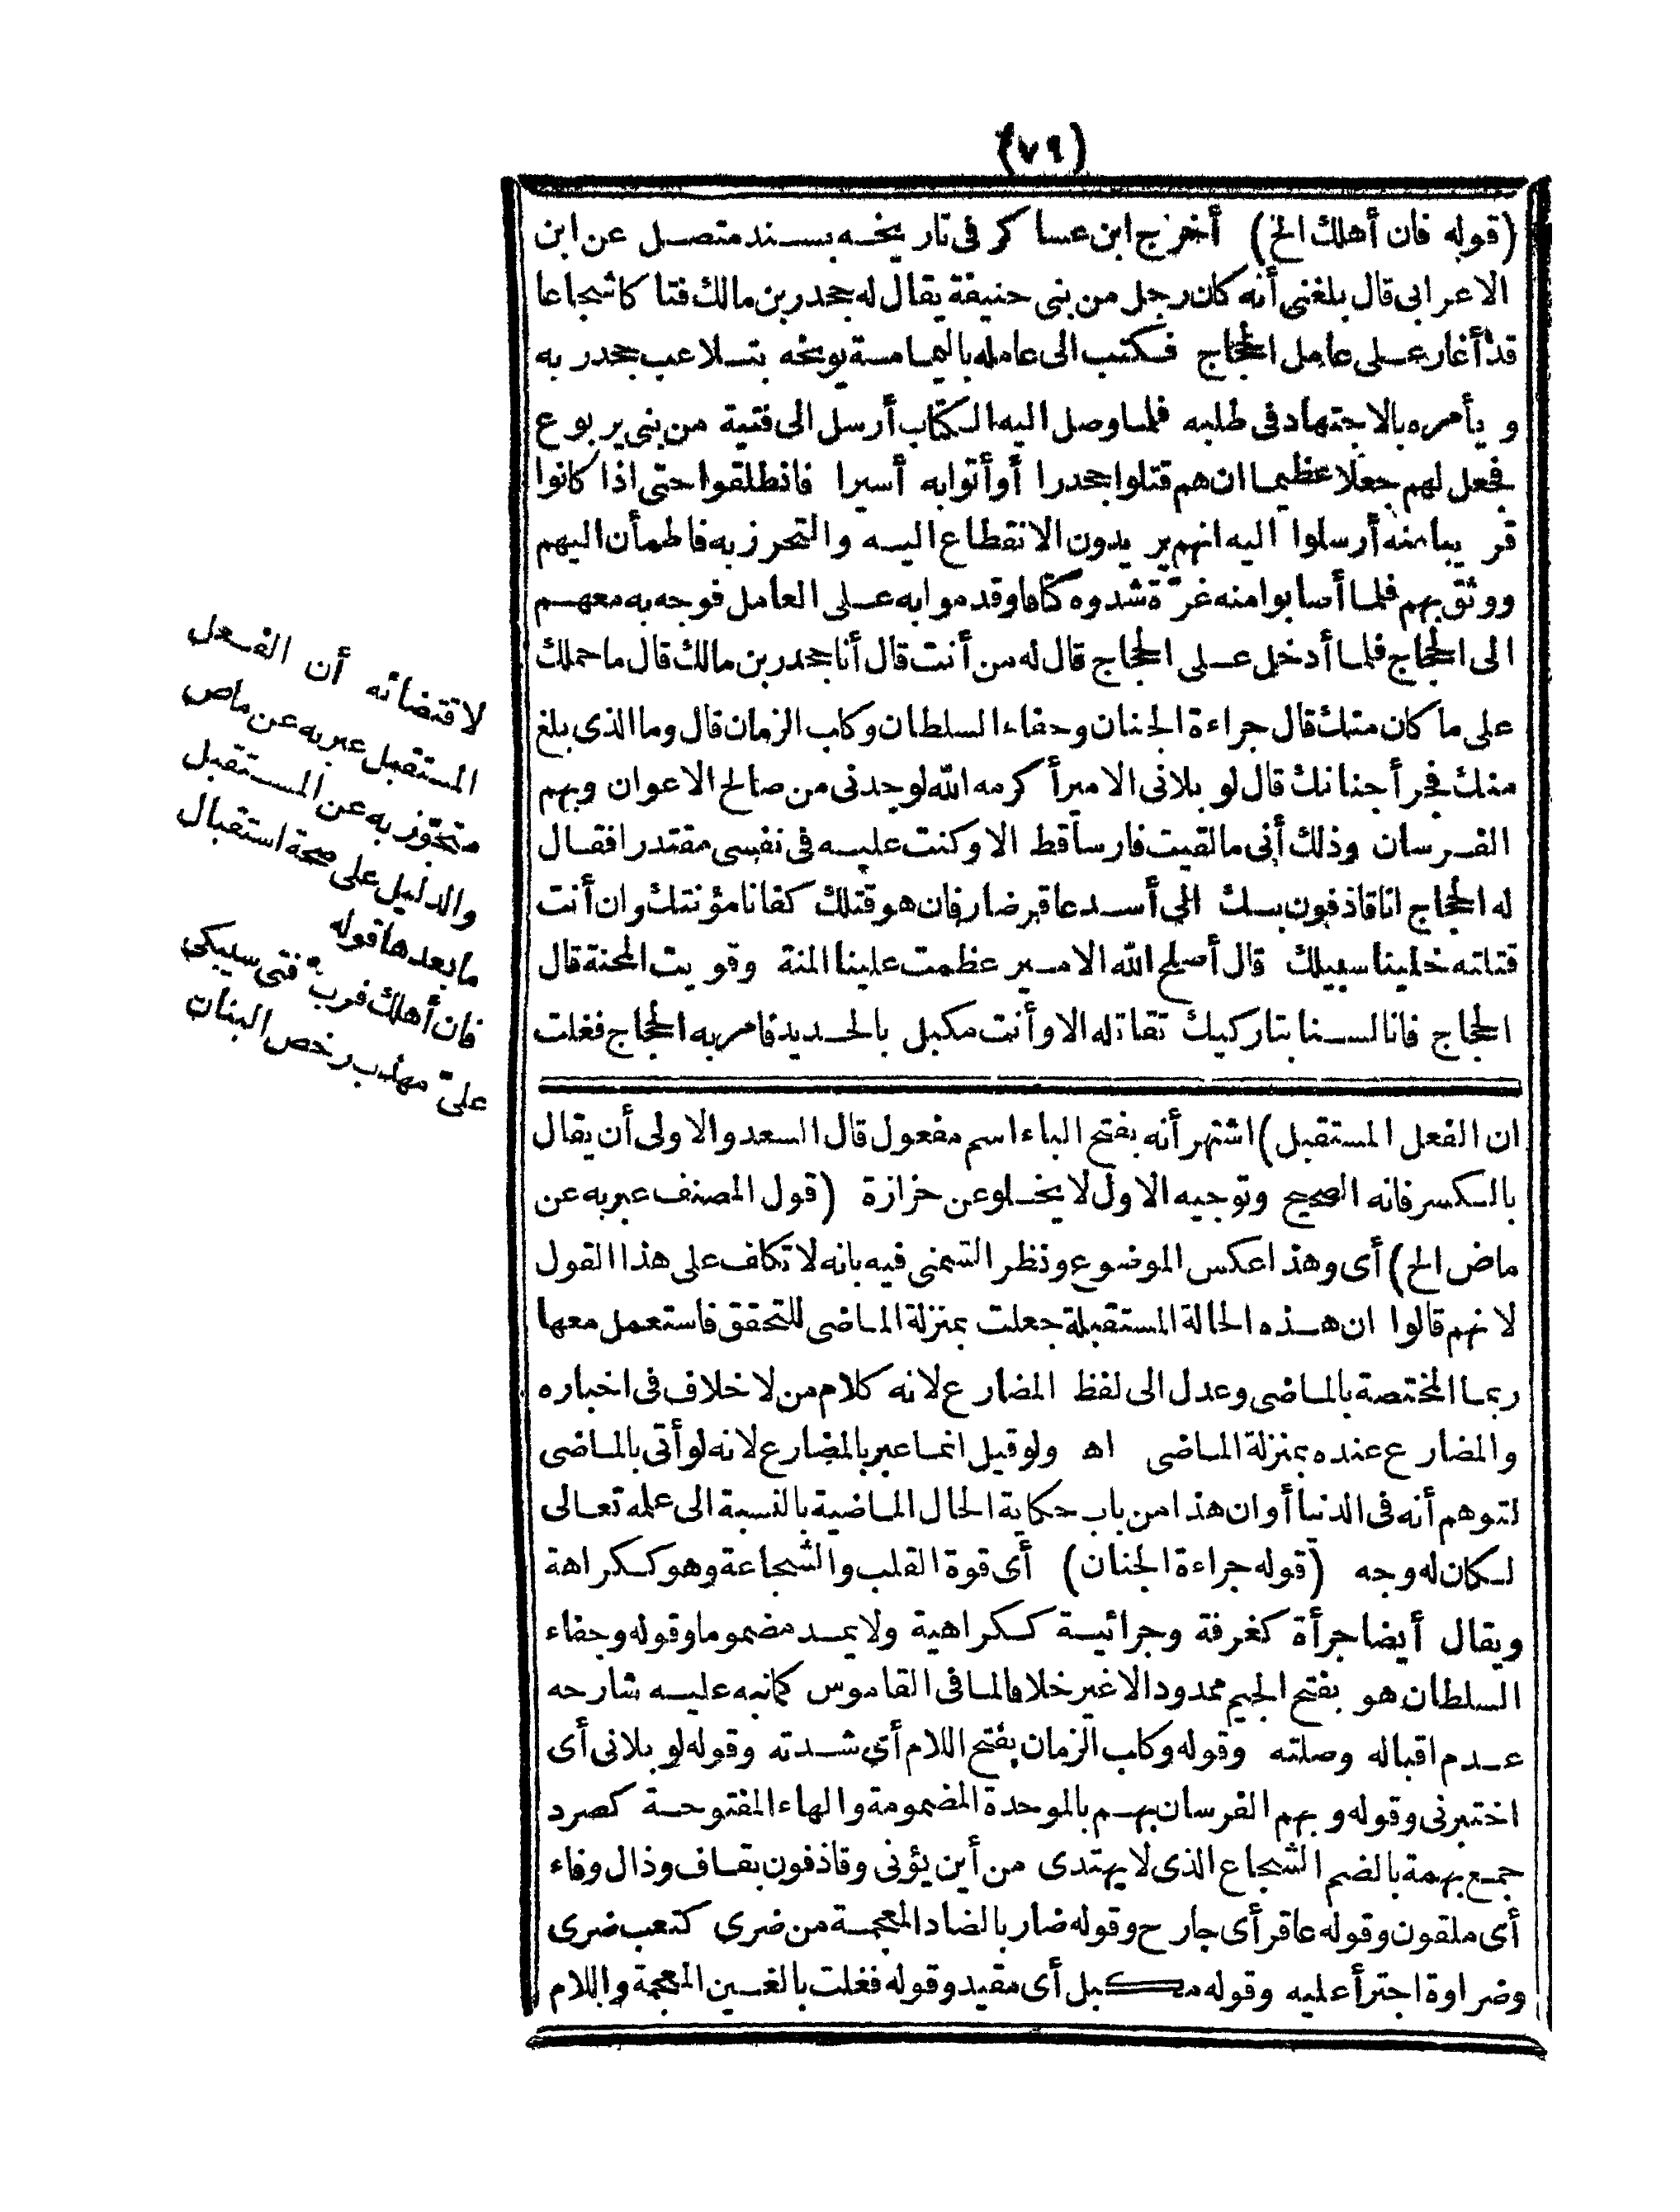 (٧٩)
(قوله فان أهلك الخ) أخرج ابن عساكر فى تاريخه بسند متصل عن ابن
الاعرابى قال بلغنى أنه كان رجل من بنى حنيفة يقال له جحدر بن مالك فتاكا شجاعا
قد أغار على عامل الحجاج فكتب الى عامله باليمامة يوبخه بتلاعب جحدر به
ويأمره بالاجتهاد فى طلبه فلما وصل اليه الكتاب أرسل الى فتية من بنى يربوع
فجعل لهم جعلا عظيما ان هم قتلوا جحدرا أو أتوا به أسيرا فانطلقوا حتى اذا كانوا
قريبا منه أرسلوا اليه انهم يريدون الانقطاع اليه والتحرز به فاطمأن اليهم
ووثق بهم فلما أصابوا منه غرّة شدوه كتافا وقدموا به على العامل فوجه به معهم
الى الحجاج فلما أدخل على الحجاج قال له من أنت قال أنا جحدر بن مالك قال ما حملك
على ما كان منك قال جراءة الجنان وجفاء السلطان وكلب الزمان قال وما الذى بلغ
منك فجرأ جنانك قال لو بلانى الامير أكرمه الله لوجدنى من صالح الاعوان وبهم
الفرسان وذلك أنى ما لقيت فارسا قط الا وكنت عليه فى نفسى مقتدرا فقال
له الحجاج انا قاذفون بك الى أسد عاقر ضار فان هو قتلك كفانا مؤنتك وان أنت
قتلته خلينا سبيلك قال أصلح الله الامير عظمت علينا المنة وقويت المحنة قال
الحجاج فانا لسنا بتاركيك تقاتله الا وأنت مكبل بالحديد فامر به الحجاج فغلت
لاقتضائه أن الفعل
المستقبل عبر به عن ماض
متجوّز به عن المستقبل
والدليل على صحة استقبال
ما بعدها قوله
فان أهلك فرب فتى سيبكى
علىّ مهذب رخص البنان
ان الفعل المستقبل) اشتهر أنه بفتح الباء اسم مفعول قال السعد والاولى أن يقال
بالكسر فانه الصحيح وتوجيه الاول لا يخلو عن حزازة (قول المصنف عبر به عن
ماض الخ) أى وهذا عكس الموضوع ونظر الشمنى فيه بانه لا تكلف على هذا القول
لانهم قالوا ان هذه الحالة المستقبلة جعلت بمنزلة الماضى للتحقق فاستعمل معها
ربما المختصة بالماضى وعدل الى لفظ المضارع لانه كلام من لا خلاف فى اخباره
والمضارع عنده بمنزلة الماضى اه ولو قيل انما عبر بالمضارع لانه لو أتى بالماضى
لتوهم أنه فى الدنيا أو ان هذا من باب حكاية الحال الماضية بالنسبة الى علمه تعالى
لكان له وجه (قوله جراءة الجنان) أى قوة القلب والشجاعة وهو ككراهة
ويقال أيضا جرأة كغرفة وجرائية ككراهية ولا يمد مضموما وقوله وجفاء
السلطان هو بفتح الجيم ممدودا لا غير خلافا لما فى القاموس كما نبه عليه شارحه
عدم اقباله وصلته وقوله وكلب الزمان بفتح اللام أى شدته وقوله لو بلانى أى
اختبرنى وقوله وبهم الفرسان بهم بالموحدة المضمومة والهاء المفتوحة كصرد
جمع بهمة بالضم الشجاع الذى لا يهتدى من أين يؤتى وقاذفون بقاف وذال وفاء
أى ملقون وقوله عاقر أى جارح وقوله ضار بالضاد المعجمة من ضرى كتعب ضرى
وضراوة اجترأ عليه وقوله مكبل أى مقيد وقوله فغلت بالغين المعجمة واللام